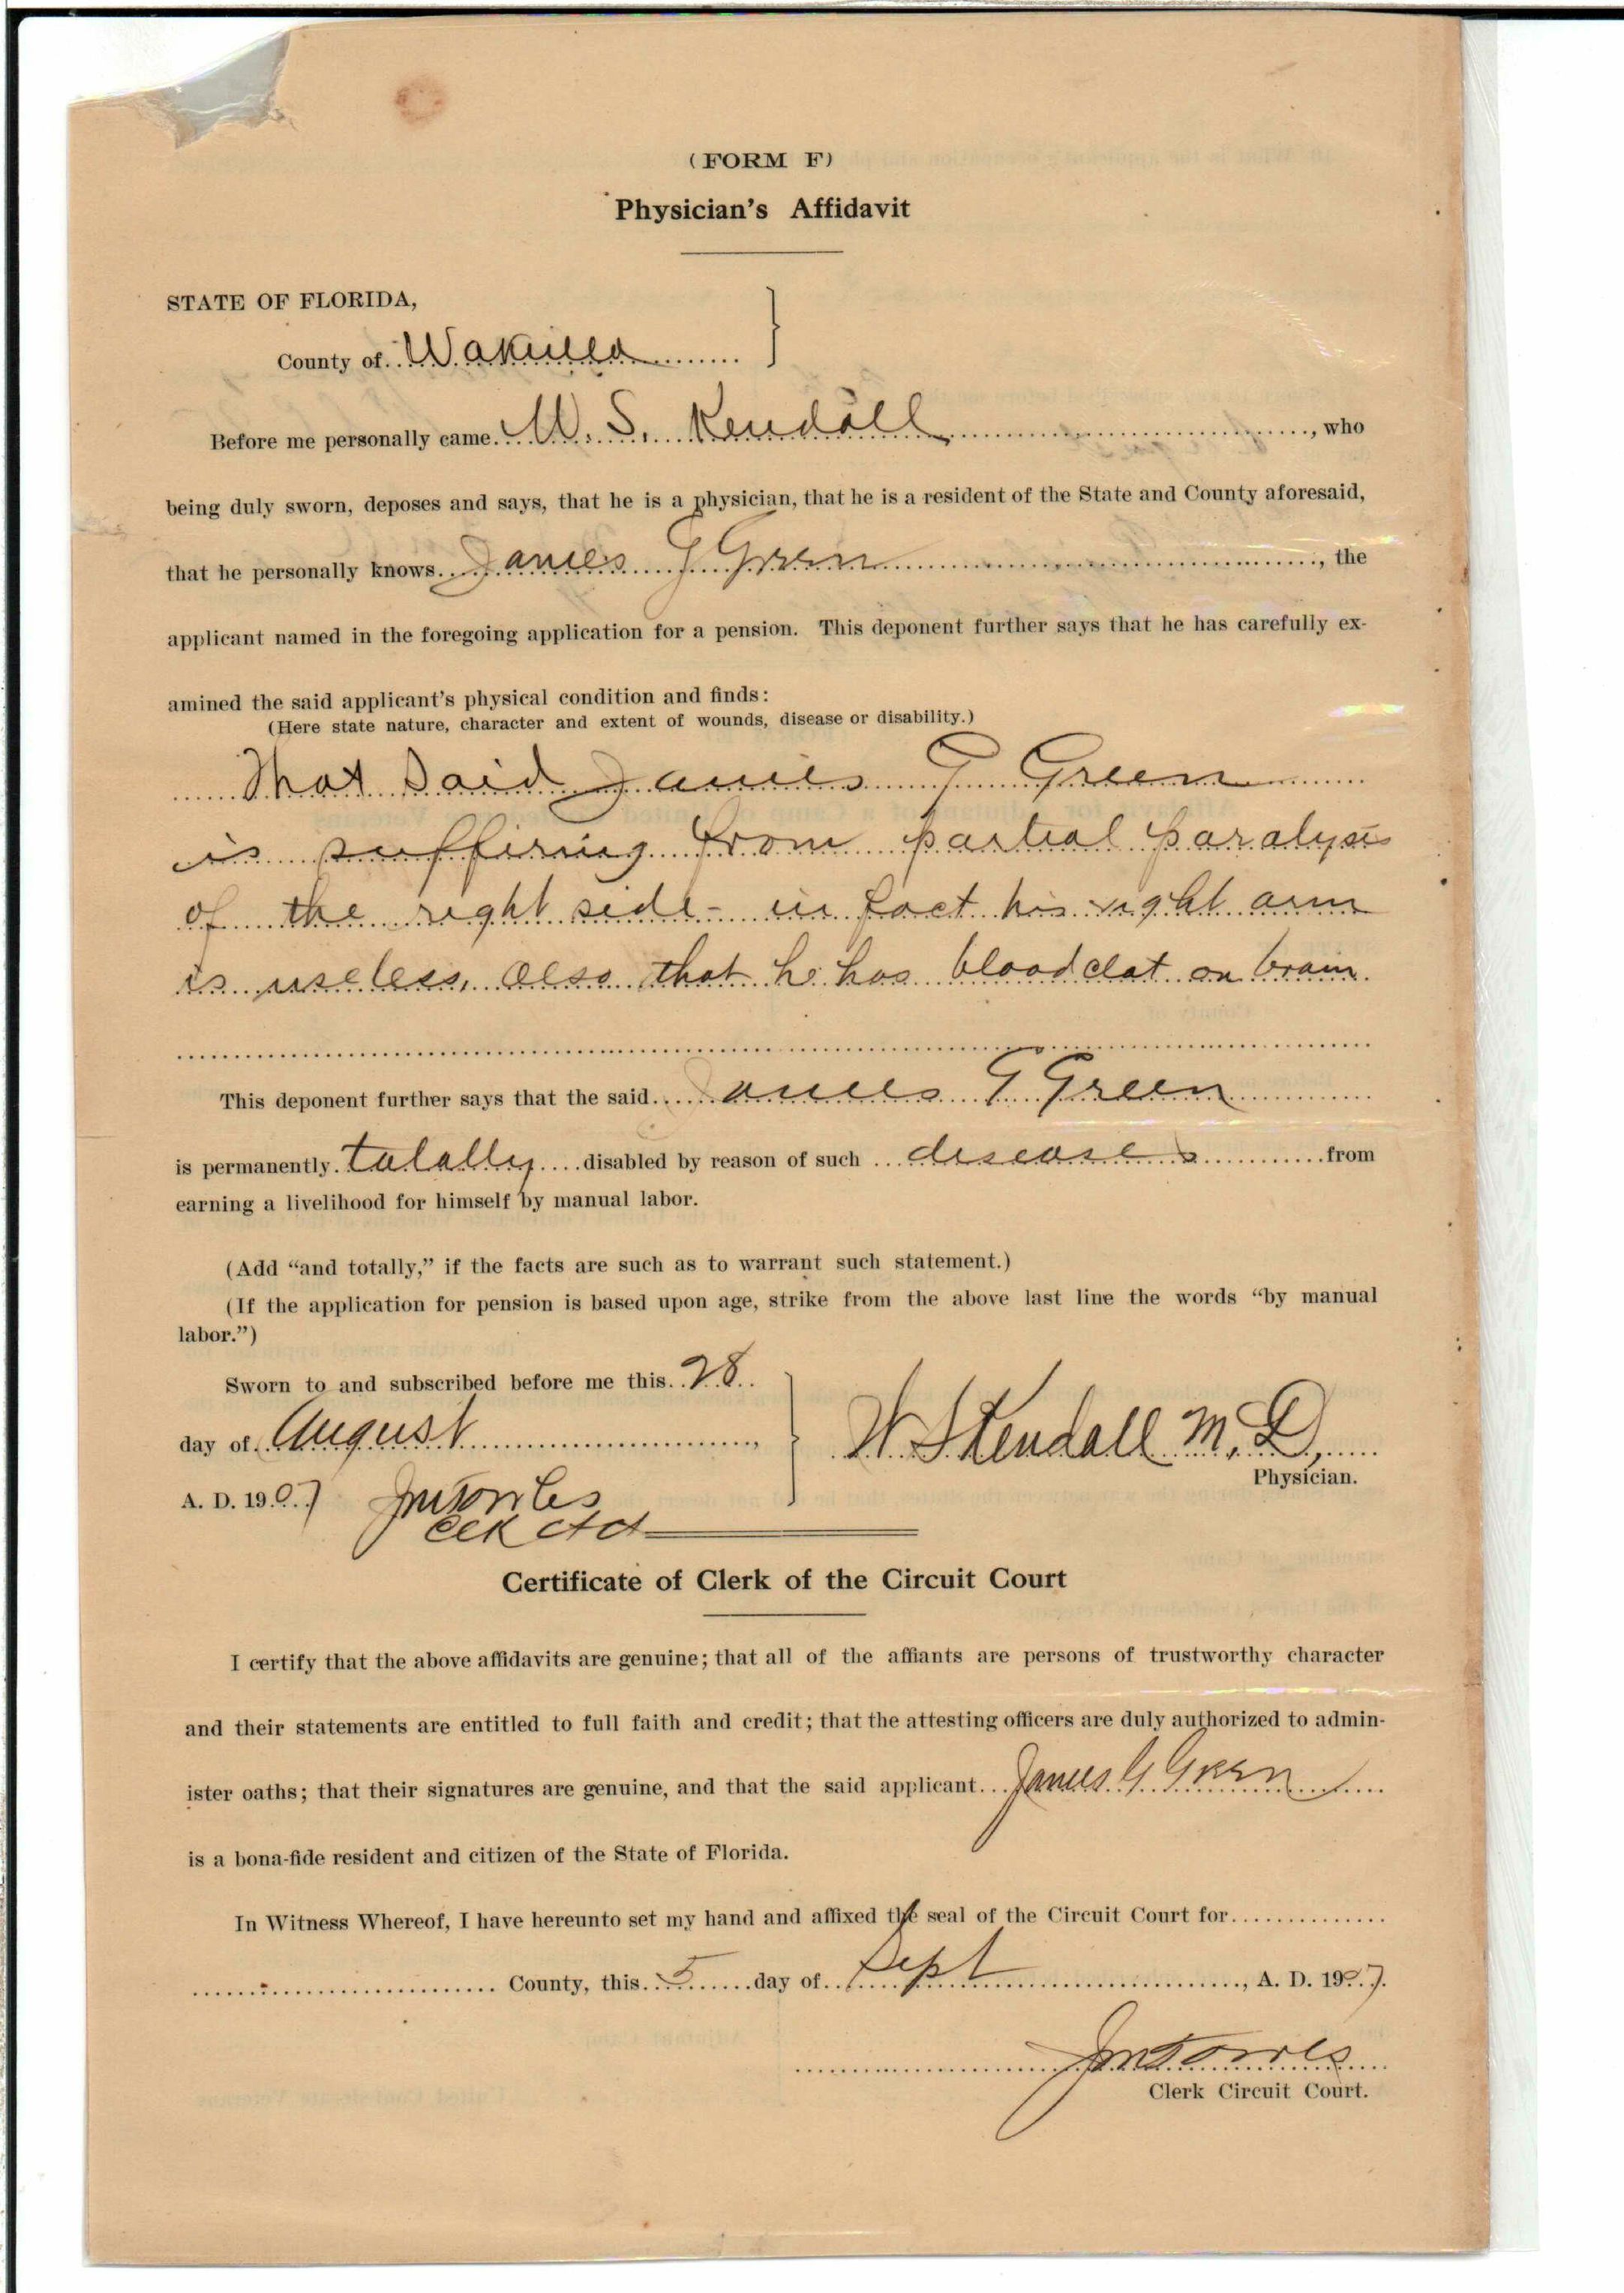 (FORM F)
Physician's Affidavit
STATE OF FLORIDA,
County of Wakulla
Before me personally came W. S. Kendall, who
being duly sworn, deposes and says, that he is a physician, that he is a resident of the State and County aforesaid,
that he personally knows James G Green, the
applicant named in the foregoing application for a pension. This deponent further says that he has carefully ex-
amined the said applicant's physical condition and finds:
(Here state nature, character and extent of wounds, disease or disability.)
That Said James G Green
is suffering from partial paralysis
of the right side - in fact his right arm
is useless, also that he has blood clot on brain.
This deponent further says that the said James G Green
is permanently totally disabled by reason of such diseases from
earning a livelihood for himself by manual labor.
(Add "and totally," if the facts are such as to warrant such statement.)
(If the application for pension is based upon age, strike from the above last line the words "by manual
labor.")
Sworn to and subscribed before me this 28
day of August,
W S Kendall M. D,
Physician.
A. D. 1907 JM Towles
Clk
Certificate of Clerk of the Circuit Court
I certify that the above affidavits are genuine; that all of the affiants are persons of trustworthy character
and their statements are entitled to full faith and credit; that the attesting officers are duly authorized to admin-
ister oaths; that their signatures are genuine, and that the said applicant James G Green
is a bona-fide resident and citizen of the State of Florida.
In Witness Whereof, I have hereunto set my hand and affixed the seal of the Circuit Court for
County, this 5 day of Sept, A. D. 1907.
JM Towles
Clerk Circuit Court.